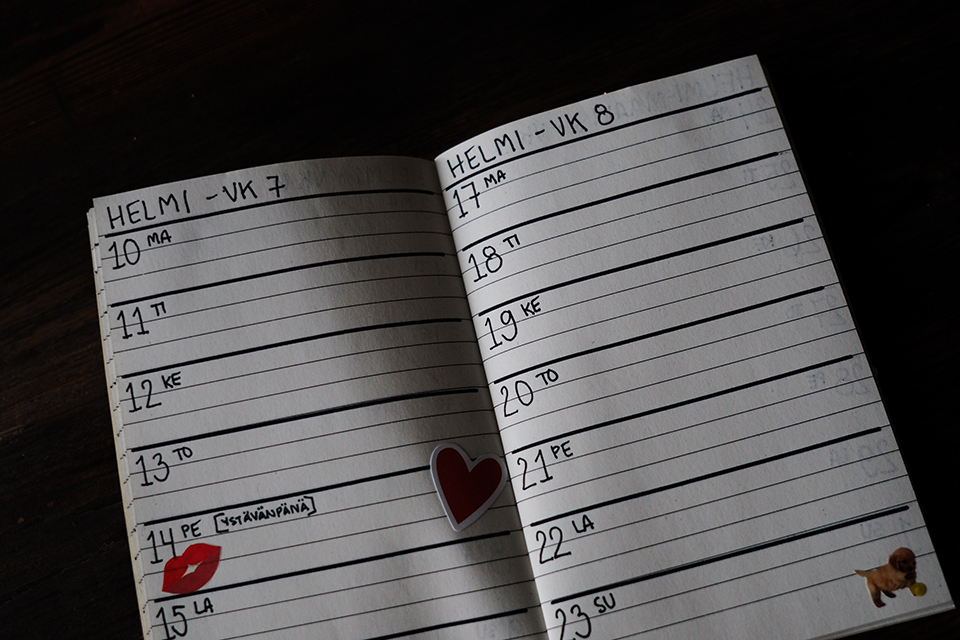 HELMI - VK 7
10 MA
11 TI
12 KE
13 TO
14 PE [YSTÄVÄNPÄNÄ]
15 LA
HELMI - VK 8
17 MA
18 TI
19 KE
20 TO
21 PE
22 LA
23 SU